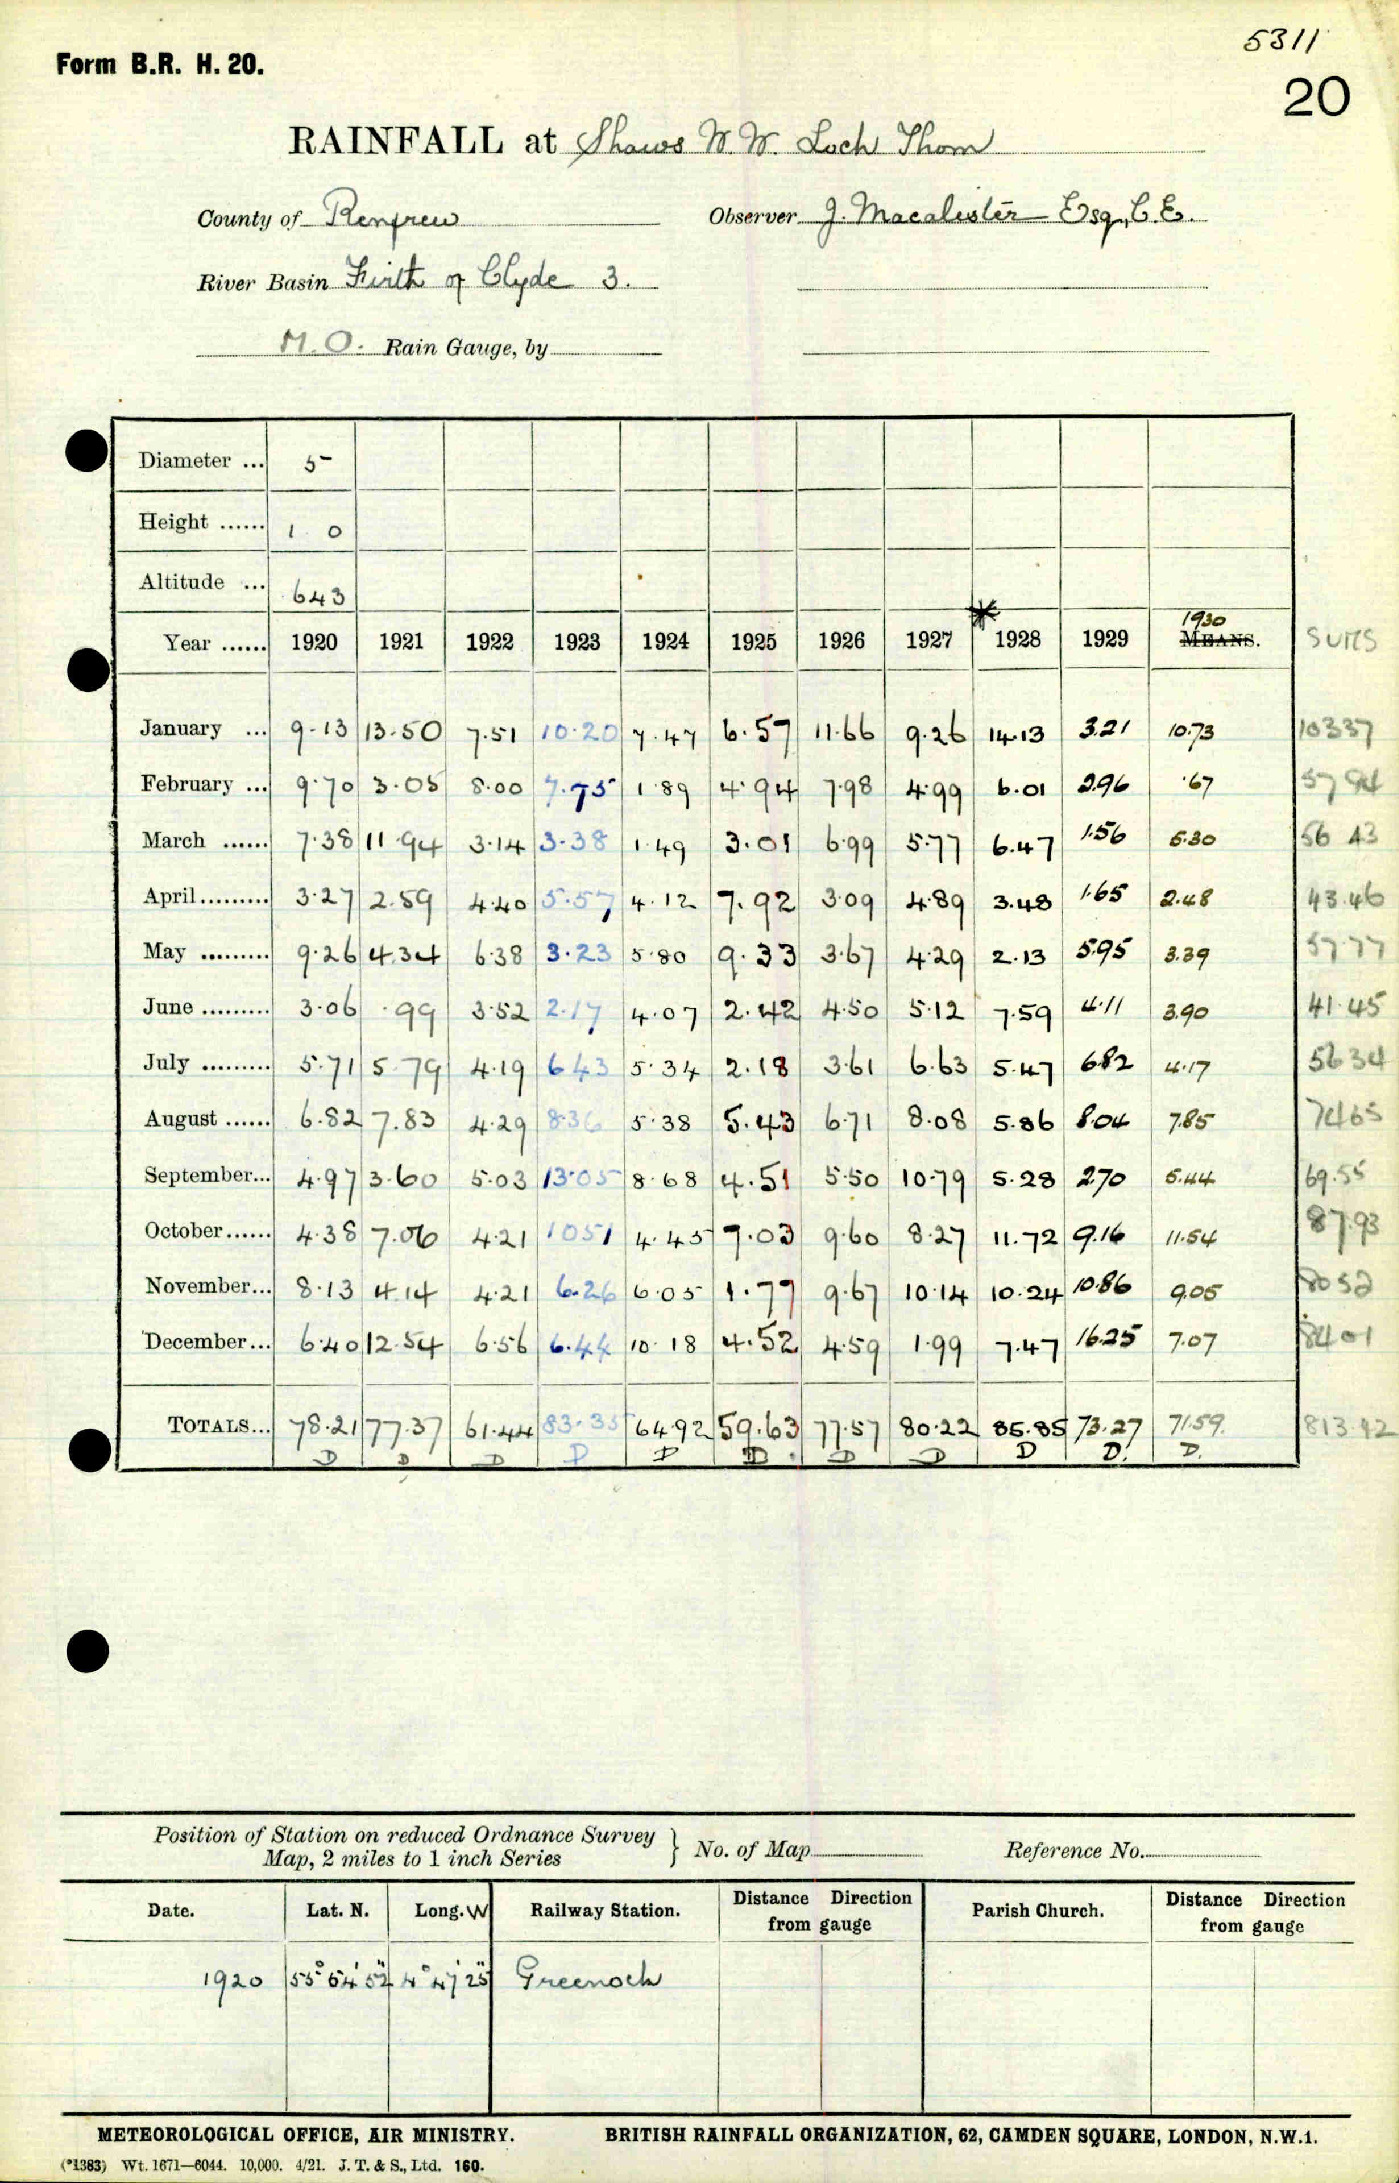 5311
Form B.R. H. 20.
20
RAINFALL at Shaws W. W. Loch Thom
County of Renfrew Observer J. Macalister Esq, C.E.
River Basin Firth of Clyde 3.
M.O. Rain Gauge, by
Diameter ... 5
Height ...... 1 0
Altitude ... 643
1930
Year ...... 1920 1921 1922 1923 1924 1925 1926 1927 * 1928 1929 MEANS. SUMS
January ... 9.13 13.50 7.51 10.20 7.47 6.57 11.66 9.26 14.13 3.21 10.73 103 37
February ... 9.70 3.05 8.00 7.75 1.89 4.94 7.98 4.99 6.01 2.96 .67 57 94
March ...... 7.38 11.94 3.14 3.38 1.49 3.01 6.99 5.77 6.47 1.56 5.30 56 43
April ......... 3.27 2.59 4.40 5.57 4.12 7.92 3.09 4.89 3.48 1.65 2.48 43.46
May ......... 9.26 4.34 6.38 3.23 5.80 9.33 3.67 4.29 2.13 5.95 3.39 57.77
June ......... 3.06 .99 3.52 2.17 4.07 2.42 4.50 5.12 7.59 4.11 3.90 41.45
July ......... 5.71 5.79 4.19 6.43 5.34 2.18 3.61 6.63 5.47 6.82 4.17 56 34
August ...... 6.82 7.83 4.29 8.36 5.38 5.43 6.71 8.08 5.86 8.04 7.85 74 65
September... 4.97 3.60 5.03 13.05 8.68 4.51 5.50 10.79 5.28 2.70 5.44 69.55
October...... 4.38 7.06 4.21 10.51 4.45 7.03 9.60 8.27 11.72 9.16 11.54 87.93
November... 8.13 4.14 4.21 6.26 6.05 1.77 9.67 10.14 10.24 10.86 9.05 80 52
December... 6.40 12.54 6.56 6.44 10.18 4.52 4.59 1.99 7.47 16.25 7.07 84 01
TOTALS... 78.21 77.37 61.44 83.35 64.92 59.63 77.57 80.22 85.85 73.27 71.59. 813.42
D D D D D D. D D D D. D.
Position of Station on reduced Ordnance Survey
Map, 2 miles to 1 inch Series } No. of Map Reference No.
Date. Lat. N. Long. W Railway Station. Distance Direction from gauge Parish Church. Distance Direction from gauge
1920 55° 54' 52" 4° 47' 25" Greenock
METEOROLOGICAL OFFICE, AIR MINISTRY. BRITISH RAINFALL ORGANIZATION, 62, CAMDEN SQUARE, LONDON, N.W.1.
(*1383) Wt. 1671—6044. 10,000. 4/21. J. T. & S., Ltd. 160.